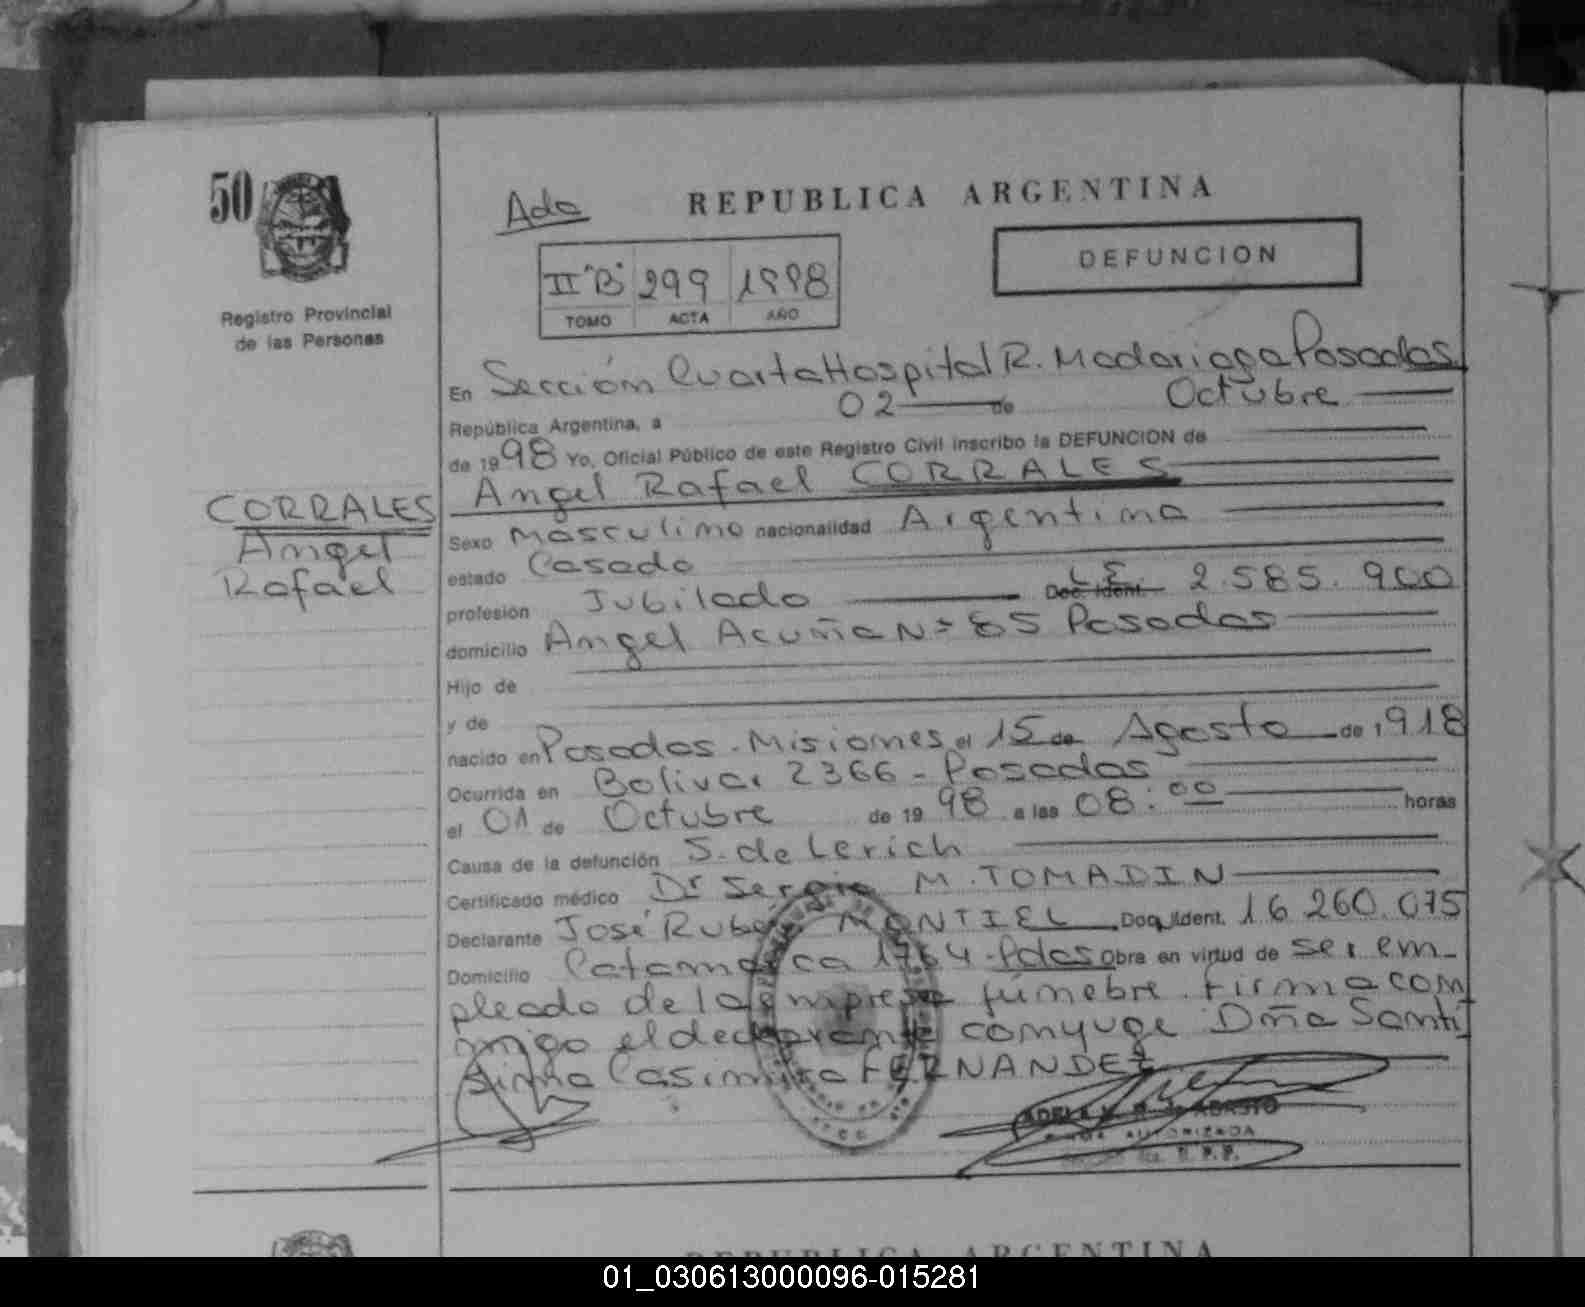 50
Registro Provincial
de las Personas
CORRALES
Angel
Rafael
Ada
REPUBLICA ARGENTINA
DEFUNCION
II "B" 299 1998
TOMO ACTA AÑO
En Sección Cuarta Hospital R. Madariaga Posadas
República Argentina, a 02 de Octubre
de 1998 Yo, Oficial Público de este Registro Civil inscribo la DEFUNCION de
Angel Rafael CORRALES
Sexo Masculino nacionalidad Argentina
estado Casado
profesión Jubilado Doc. Ident. L.E. 2.585.900
domicilio Angel Acuña Nº 85 Posadas
Hijo de
y de
nacido en Posadas - Misiones el 15 de Agosto de 1918
Ocurrida en Bolivar 2366 - Posadas
el 01 de Octubre de 1998 a las 08:00 horas
Causa de la defunción S. de Lerich
Certificado médico Dr Sergio M. TOMADIN
Declarante José Rubén MONTIEL Doc. Ident. 16.260.075
Domicilio Catamarca 1764 - Pdas Obra en virtud de ser em-
pleado de la empresa fúnebre. Firma con
migo el declarante conyuge Dña Santi
sima Casimira FERNANDEZ
ADELA
FIRMA AUTORIZADA
R. P. P.
REPUBLICA ARGENTINA
01_030613000096-015281